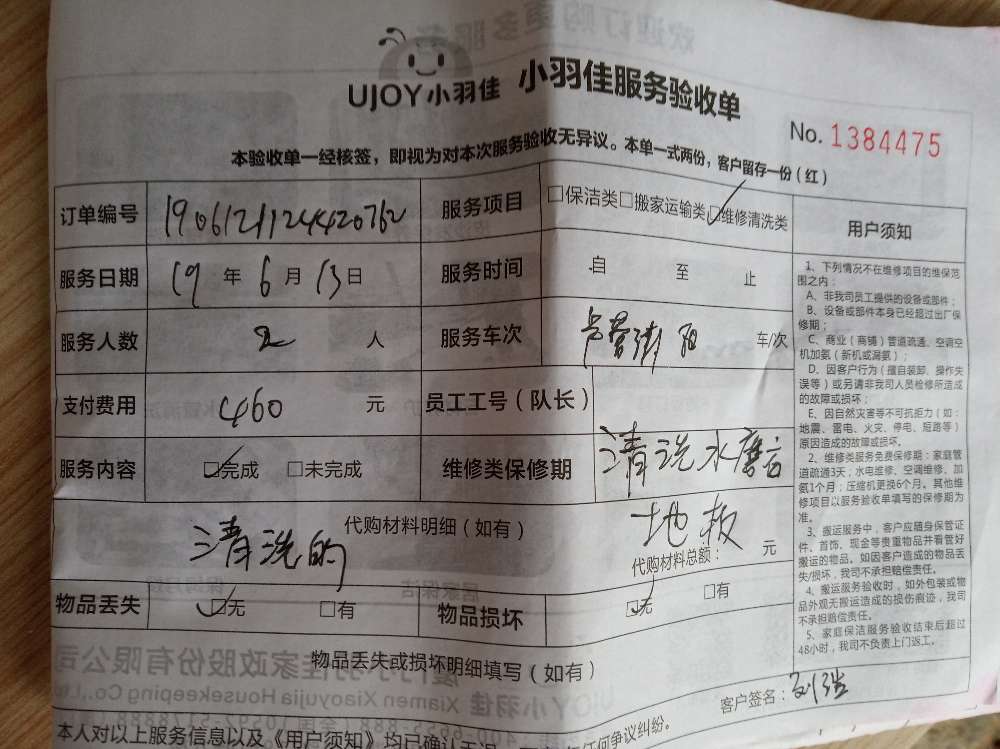 UJOY小羽佳 小羽佳服务验收单
No. 1384475
本验收单一经核签，即视为对本次服务验收无异议。本单一式两份，客户留存一份（红）
订单编号 1906121124420762 服务项目 □保洁类□搬家运输类☑维修清洗类
服务日期 19年6月13日 服务时间 自 至 止
服务人数 2 人 服务车次 车/次
支付费用 460 元 员工工号（队长）
服务内容 ☑完成 □未完成 维修类保修期 清洗水磨石
代购材料明细（如有） 地板
清洗的 代购材料总额： 元
物品丢失 ☑无 □有 物品损坏 ☑无 □有
物品丢失或损坏明细填写（如有）
客户签名：
本人对以上服务信息以及《用户须知》均已确认无误 任何争议纠纷。
用户须知
1、下列情况不在维修项目的维保范
围之内：
A、非我司员工提供的设备或部件；
B、设备或部件本身已经超过出厂保
修期；
C、商业（商铺）管道疏通、空调空
机加氨（新机或漏氨）；
D、因客户行为（擅自装卸、操作失
误等）或另请非我司人员检修所造成
的故障或损坏；
E、因自然灾害等不可抗拒力（如：
地震、雷电、火灾、停电、短路等）
原因造成的故障或损坏。
2、维修类服务免费保修期：家庭管
道疏通3天；水电维修、空调维修、加
氨1个月；压缩机更换6个月。其他维
修项目以服务验收单填写的保修期为
准。
3、搬运服务中，客户应随身保管证
件、首饰、现金等贵重物品并看管好
搬运的物品。如因客户造成的物品丢
失/损坏，我司不承担赔偿责任。
4、搬运服务验收时，如外包装或物
品外观无搬运造成的损伤痕迹，我司
不承担赔偿责任。
5、家庭保洁服务验收结束后超过
48小时，我司不负责上门返工。